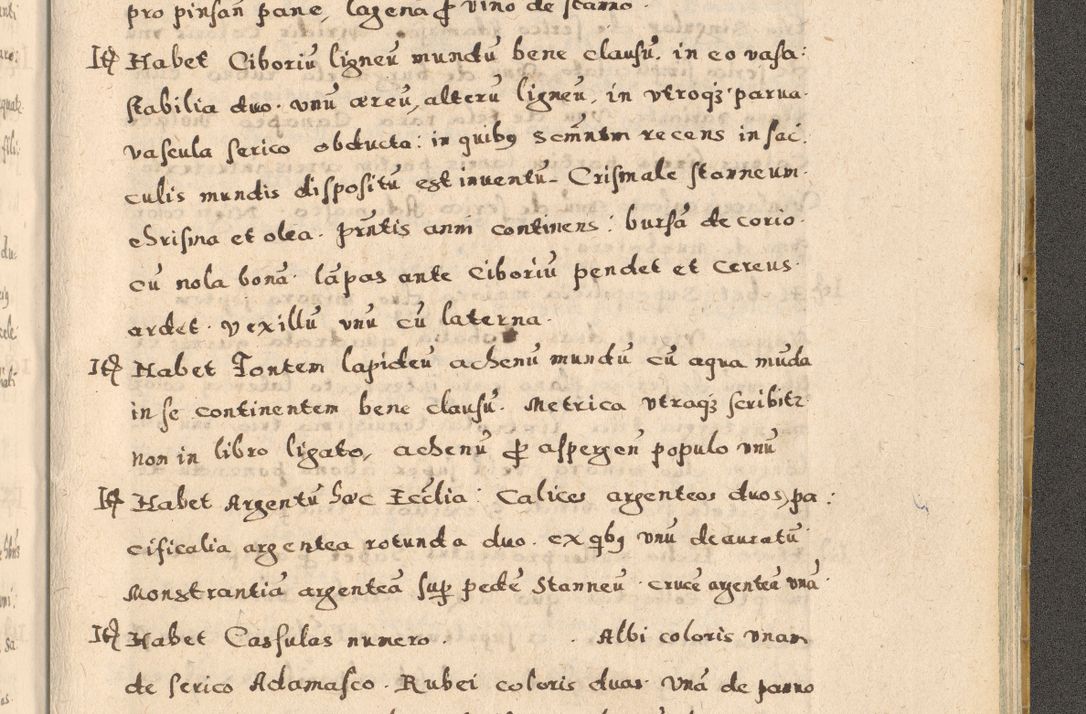 pro pinsan̄ pane, lagena ꝑ vino de stanno.
Itꝫ Habet Ciboriū ligneū mundū bene clausū. in eo vasa:
stabilia duo. vnū æreū, alterū ligneū, in vtroqꝫ parua
vascula serico obducta: in quibꝯ Scm̄ntm recens in sac:
culis mundis dispositū est inventū. Crismale stanneum.
chrisma et olea. pr̄ntis anni continens: bursā de corio.
cū nola bonā. lāpas ante Ciboriū pendet et Cereus.
ardet. vexillū vnū cū laterna.
Itꝫ Habet Fontem lapideū achenū mundū cū aqua mūda
in se continentem bene clausū. Metrica vtraqꝫ scribitr
non in libro ligato, achenū ꝑ aspergen̄ populo vnū
Itꝫ Habet Argentū hæc Eccl̄ia: Calices argenteos duos, pa:
cificalia argentea rotunda duo. ex qͥbꝯ vnū deauratū
Monstrantiā argenteā sup̱ pedē Stanneū. crucē argenteā vnā.
Itꝫ Habet Cassulas numero. . Albi coloris vnam
de serico Adamasco. Rubei coloris duas. vnā de panno